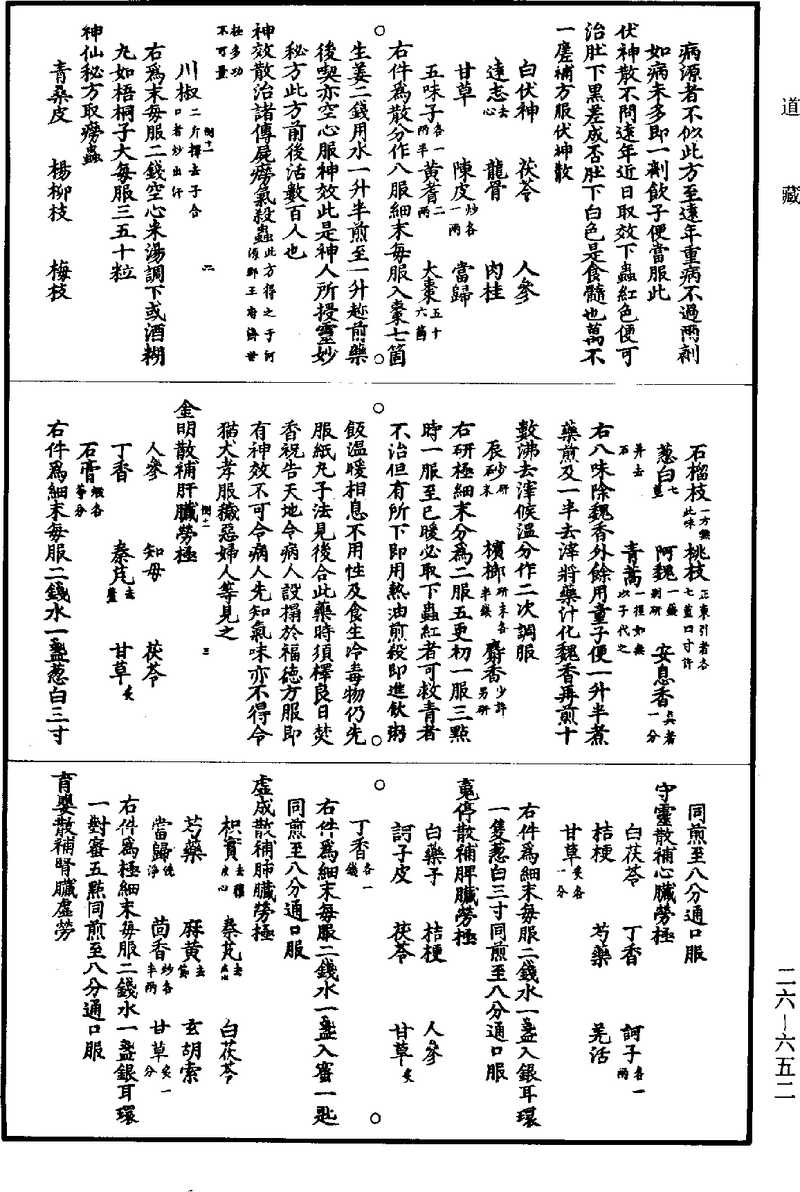 道藏
病源者不似此方至遠年重病不過兩劑
如病未多即一劑飲子便當服此
伏神散不問遠年近日取效下蟲紅色便可
治肚下黑差成否肚下白色是食髓也萬不
一塵補方服伏神散
白伏神 茯苓 人參
遠志去心 龍骨 肉桂
甘草 陳皮炒各一兩 當歸
五味子各一兩半 黃耆二兩 大棗五十六箇
右件為散分作八服細末每服入棗七箇
生姜二錢用水一升半煎至一升趂前藥
後喫亦空心服神效此是神人所授靈妙
秘方此方前後活數百人也
神效散治諸傳屍癆氣殺蟲此方得之于河淡郡王府濟世極多功不可量
川椒二斤擇去子合口者炒出汗
右為末每服二錢空心米湯調下或酒糊
丸如梧桐子大每服三五十粒
神仙秘方取癆蟲
青桑皮 楊柳枝 梅枝
石榴枝一方無此味 桃枝正東引者各七莖口寸許
葱白七莖 阿魏一錢別研 安息香真者一分
青蒿一握如無以子代之
右八味除魏香外餘用童子便一升半煮
藥煎及一半去滓將藥汁化魏香再煎十
數沸去滓候溫分作二次調服
辰砂少研末 檳榔研末各半錢 麝香少許另研
右研極細末分為二服五更初一服三點
時一服至巳暖必取下蟲紅者可救青者
不治但有所下即用熱油煎殺即進飲粥
飯溫暖相息不用性及食生冷毒物仍先
服紙丸子法見後合此藥時須擇良日焚
香祝告天地令病人設榻於福德方服即
有神效不可令病人先知氣味亦不得令
猫犬孝服穢惡婦人等見之
金明散補肝臟勞極
人參 知母 茯苓
丁香 秦艽去蘆 甘草炙
石膏煅各等分
右件為細末每服二錢水一盞葱白三寸
同煎至八分通口服
守靈散補心臟勞極
白茯苓 丁香 訶子各一兩
桔梗 芍藥 羌活
甘草炙各一分
右件為細末每服二錢水一盞入銀耳環
一隻葱白三寸同煎至八分通口服
魂停散補脾臟勞極
白藥子 桔梗 人參
訶子皮 茯苓 甘草炙
丁香各一錢
右件為細末每服二錢水一盞入蜜一匙
同煎至八分通口服
虛成散補肺臟勞極
枳實去穰 秦艽去 白茯苓
芍藥 麻黃去節 玄胡索
當歸洗淨 茴香炒各半兩 甘草炙一分
右件為極細末每服二錢水一盞銀耳環
一對蜜五點同煎至八分通口服
育嬰散補腎臟虛勞
二六—六五二